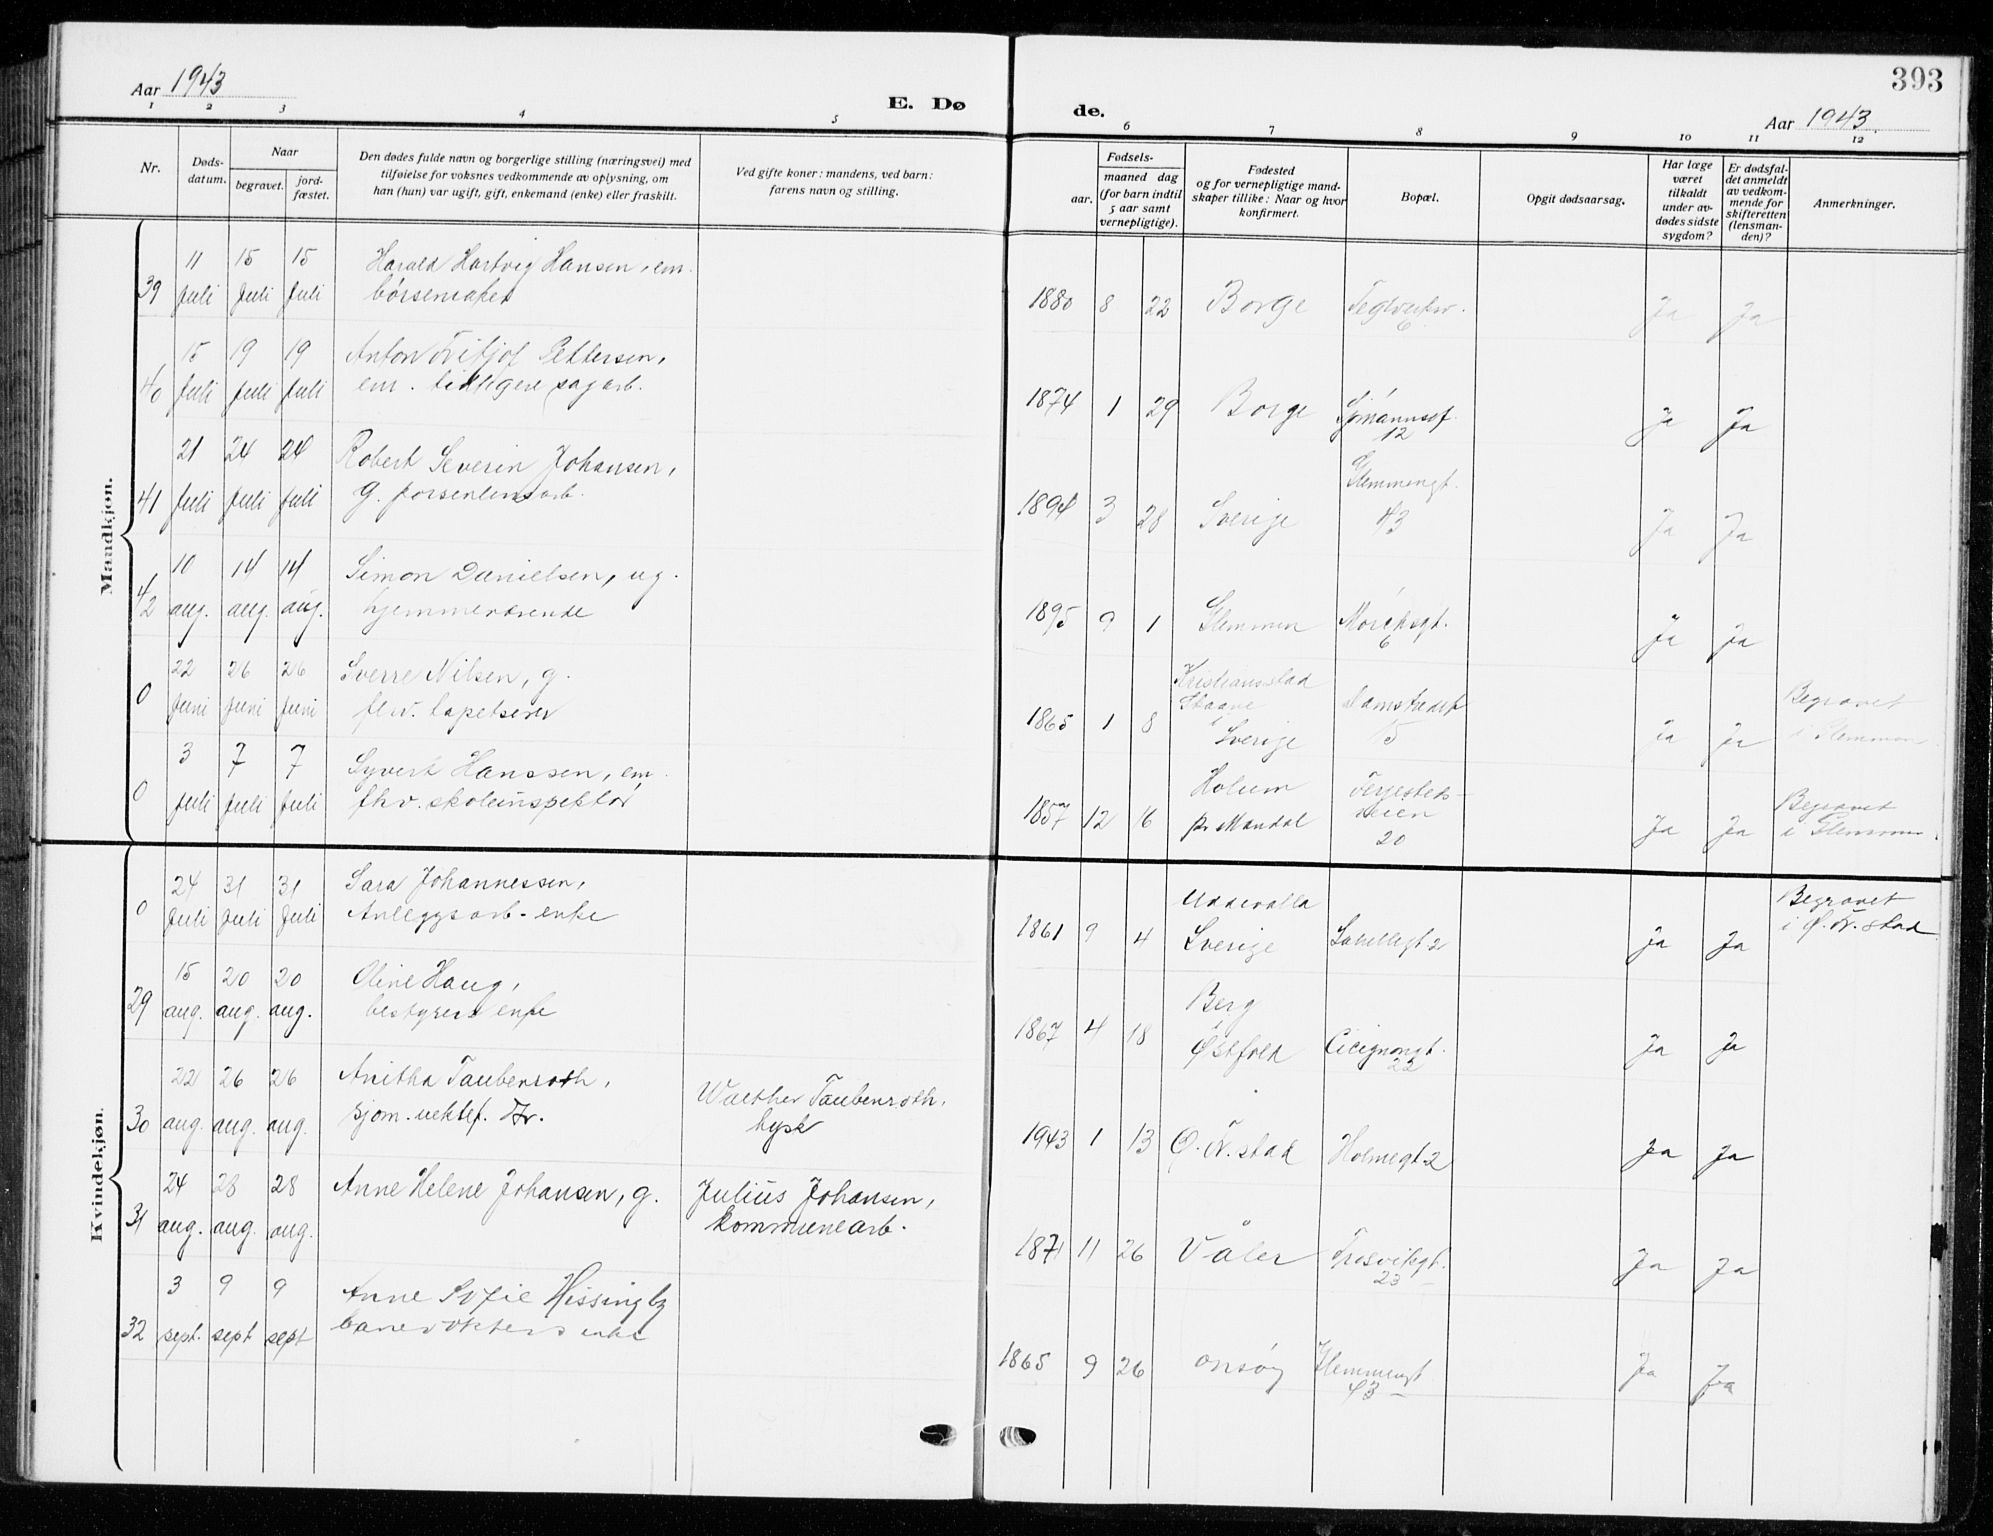 393
Aar 1943
E. Dø
de.
Aar 1943.
1 2 3 4 5 6 7 8 9 10 11 12
Nr.
Døds-
datum.
Naar
begravet.
jord-
fæstet.
Den dødes fulde navn og borgerlige stilling (næringsvei) med
tilføielse for voksnes vedkommende av oplysning, om
han (hun) var ugift, gift, enkemand (enke) eller fraskilt.
Ved gifte koner: mandens, ved barn:
farens navn og stilling.
Fødsels-
aar.
maaned dag
(for barn indtil
5 aar samt
vernepligtige).
Fødested
og for vernepligtige mand-
skaper tillike: Naar og hvor
konfirmert.
Bopæl.
Opgit dødsaarsag.
Har læge
været
tilkaldt
under av-
dødes sidste
sygdom?
Er dødsfal-
det anmeldt
av vedkom-
mende for
skifteretten
(lensman-
den)?
Anmerkninger.
Maandkjøn.
11 15 15 Harald Hartvig Hansen, em.
39 Juli Juli Juli børsemaker
1880 8 22 Borge Teglverksv.
6
Ja Ja
15 19 19 Anton Fritjof Pettersen,
40 Juli Juli Juli em. tidligere sagarb.
1874 1 29 Borge
12
Ja Ja
21 24 24 Robert Severin Johansen,
41 Juli Juli Juli g. porselensarb.
1894 3 28 Sverige Glemmengt.
43
Ja Ja
10 14 14 Simon Danielsen, ug.
42 aug. aug. aug. hjemmeværende
1895 9 1 Glemmen Mørchsgt.
6
Ja Ja
22 26 26 Sverre Nilsen, g.
0 Juni Juni Juni fhv. tapetserer
1865 1 8 Kristiansstad
Skaane
Sverige
Damstredet
15
Ja Ja
Begravet
i Glemmen
3 7 7 Syvert Hanssen, em.
0 Juli Juli Juli fhv. skoleinspektør
1857 12 16 Holum
pr Mandal
Ferjesteds-
veien
20
Ja Ja
Begravet
i Glemmen.
Kvindekjøn.
24 31 31 Sara Johannessen,
0 Juli Juli Juli Anleggsarb. enke
1861 9 4 Uddevalla
Sverige
Ja Ja
Begravet
i Ø. Fr.stad
15 20 20 Oline Haug,
29 aug. aug. aug. bestyrers enke
1867 4 18 Berg
Østfold
Cicignongt.
22
Ja Ja
22 26 26 Anitha Taubenroth,
30 aug. aug. aug.
Walther Taubenroth,
tysk
1943 1 13 Ø. Fr.stad Holmegt 2
Ja Ja
24 28 28 Anne Helene Johansen, g.
31 aug. aug. aug.
Julius Johansen,
kommunearb.
1871 11 26 Våler Trosvikgt.
23
Ja Ja
3 9 9 Anne Sofie Hissingby
32 sept. sept sept banevokters enke
1865 9 26 Onsøy Glemmengt
43
Ja Ja